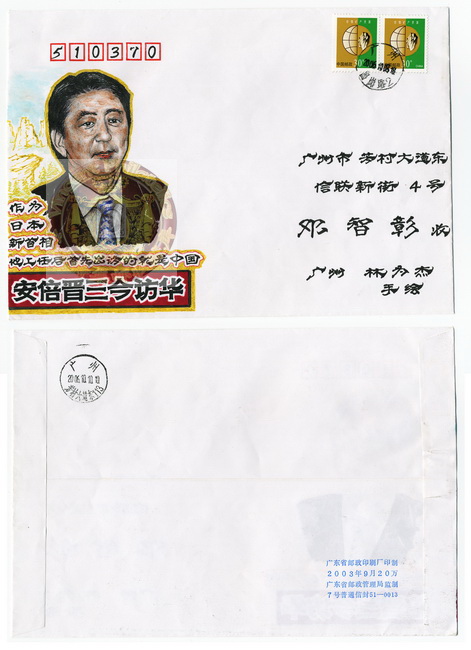 510370
中国邮政 30分
30分
2006.10.08.18
广州市芳村大道东
信联新街4号
邓智彰 收
广州 林为杰
手绘
作为
日本
新首相
他上任后首先出访的就是中国
安倍晋三今访华
广州
2006.10.10.10
广东省邮政印刷厂印制
2003年9月20万
广东省邮政管理局监制
7号普通信封51—0013